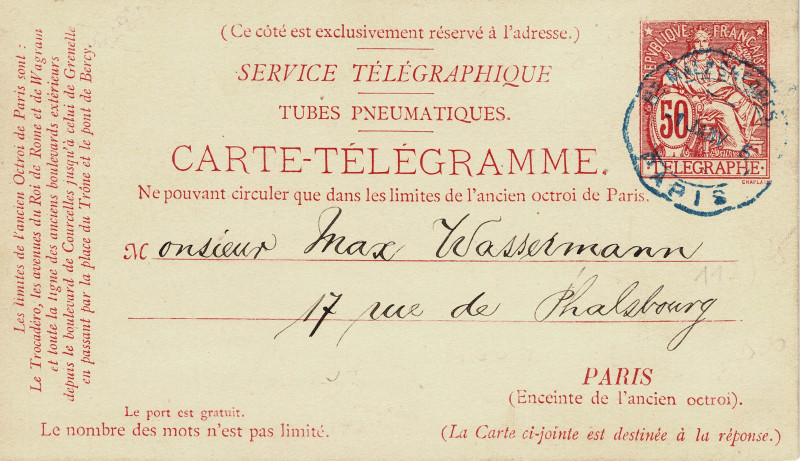 (Ce côté est exclusivement réservé à l'adresse.)
SERVICE TÉLÉGRAPHIQUE
TUBES PNEUMATIQUES.
CARTE-TÉLÉGRAMME.
Ne pouvant circuler que dans les limites de l'ancien octroi de Paris.
Monsieur Max Wassermann
17 rue de Phalsbourg
11-
PARIS
(Enceinte de l'ancien octroi).
Le port est gratuit.
Le nombre des mots n'est pas limité.
(La Carte ci-jointe est destinée à la réponse.)
Les limites de l'ancien Octroi de Paris sont :
Le Trocadéro, les avenues du Roi de Rome et de Wagram
et toute la ligne des anciens boulevards extérieurs
depuis le boulevard de Courcelles jusqu'à celui de Grenelle
en passant par la place du Trône et le pont de Bercy.
REPUBLIQUE FRANÇAISE
50
TELEGRAPHE
CHAPLAIN
PARIS